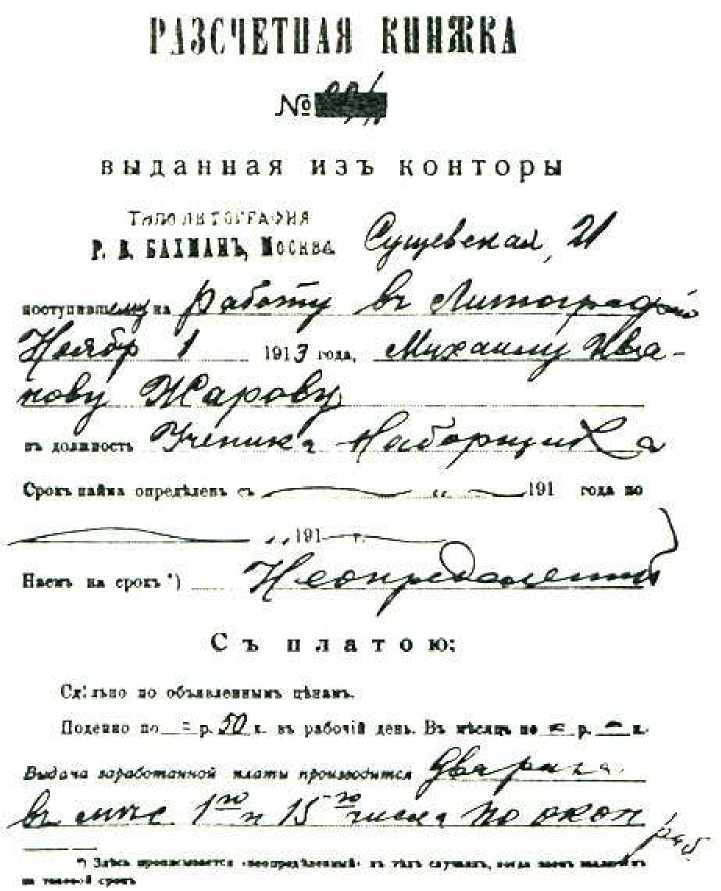 РАЗСЧЕТНАЯ КНИЖКА
№
выданная изъ конторы
ТИПО ЛИТОГРАФИЯ
Р. В. БАХМАНЪ, Москва. Сущевская, 21
поступившему на работу въ Литографію
Ноябр 1 1913 года, Михаилу Ива-
нову Жарову
въ должность Ученика Наборщика
Срокъ найма опредѣленъ съ „ 191 года по
„ 191 г.
Наемъ на срокъ *) Неопредѣленный
Съ платою:
Сдѣльно по объявленнымъ цѣнамъ.
Поденно по = р. 50 к. въ рабочій день. Въ мѣсяцъ по = р. – к.
Выдача заработанной платы производится два раза
въ мѣс 1го и 15го числа по окон
раб
*) Здѣсь прописывается «неопредѣленный» въ тѣхъ случаяхъ, когда наемъ
на таковой срокъ